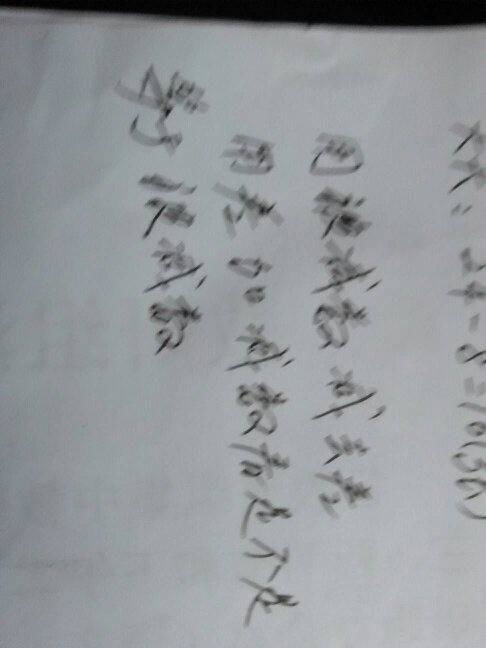 24-8=
用被减数减去差
用差加减数看是不是
等于被减数